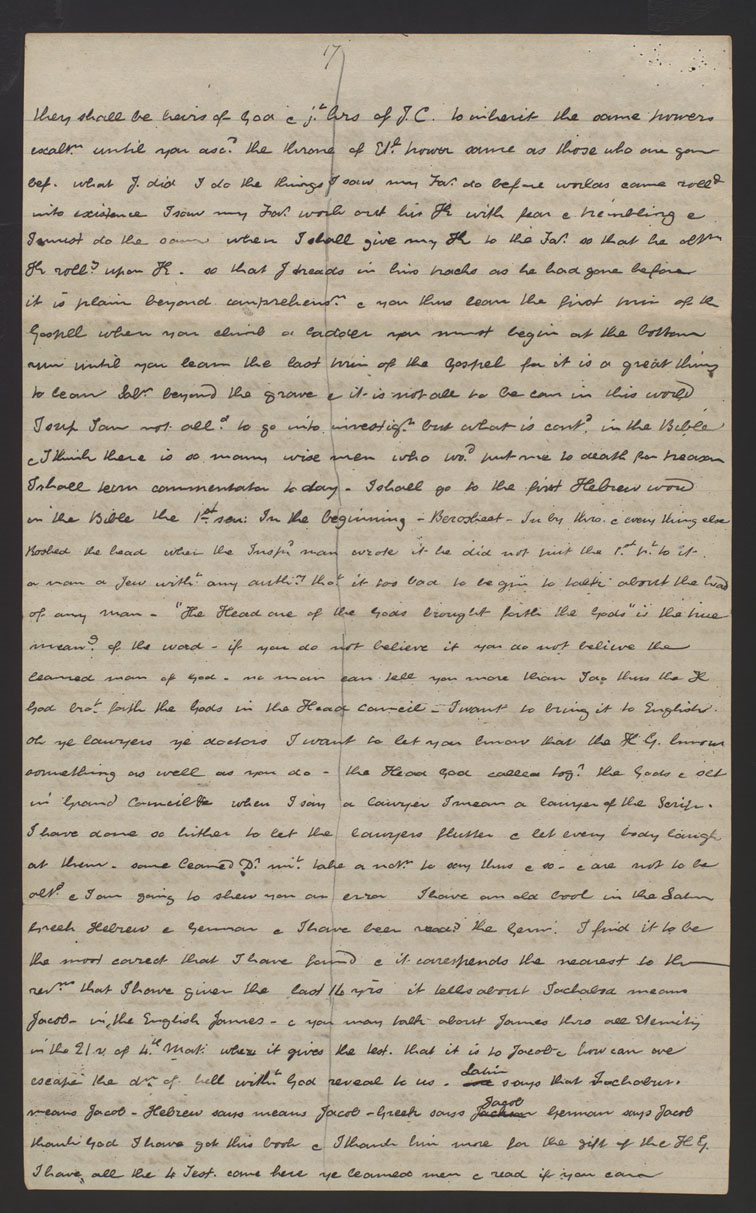 17
they shall be heirs of God & jt. hrs of J.C. to inherit the same powers
exaltn. until you ascd. the throne of Etl. power same as those who are gone
bef. what J. did I do the things I saw my Far. do before worlds came rolld
into existence I saw my Far. work out his K with fear & trembling &
I must do the same when I shall give my K to the Far. so that he obtns
K rolld. upon K. so that J treads in his tracks as he had gone before
it is plain beyond comprehensn. & you thus learn the first prin of the
Gospell when you climb a ladder you must begin at the bottom
run until you learn the last prin of the Gospel for it is a great thing
to learn Saln. beyond the grave & it is not all to be com in this world
I sup I am not alld. to go into investign. but what is contd. in the Bible
& I think there is so many wise men who wod. put me to death for treason
I shall turn commentator today - I shall go to the first Hebrew word
in the Bible the 1st sen: In the beginning - Berosheet - In by thro. & every thing else
Roshed the head when the Inspd. man wrote it he did not put the 1st pt. to it.
a man a Jew witht. any authy. thot it too bad to begin to talk about the head
of any man - "The Head one of the Gods brought forth the Gods" is the true
meang. of the word - if you do not believe it you do not believe the
learned man of God - no man can tell you more than I do thus the H
God brot. forth the Gods in the Head council - I want to bring it to English.
oh ye lawyers ye doctors I want to let you know that the H.G. knows
something as well as you do - the Head God called togr. the Gods & set
in Grand Council & when I say a lawyer I mean a lawyer of the Scrip.
I have done so hither to let the lawyers flutter & let every body laugh
at them - some learned Dr. mit. take a notn. to say thus & so - & are not to be
altd. & I am going to shew you an error I have an old book in the Latin
Greek Hebrew & German & I have been readg. the Germ: I find it to be
the most correct that I have found & it corresponds the nearest to the
revns. that I have given the last 14 yrs it tells about Jachabod means
Jacob - in the English James - & you may talk about James thro all Eternity
in the 21 v. of 4th. Mat: where it gives the test. that it is to Jacob & how can we
escape the dn. of hell witht. God reveal to us. Latin says that Jachabus.
means Jacob - Hebrew says means Jacob - Greek says Jacob German says Jacob
thank God I have got this book & I thank him more for the gift of the H G.
I have all the 4 Test. come here ye learned men & read if you can